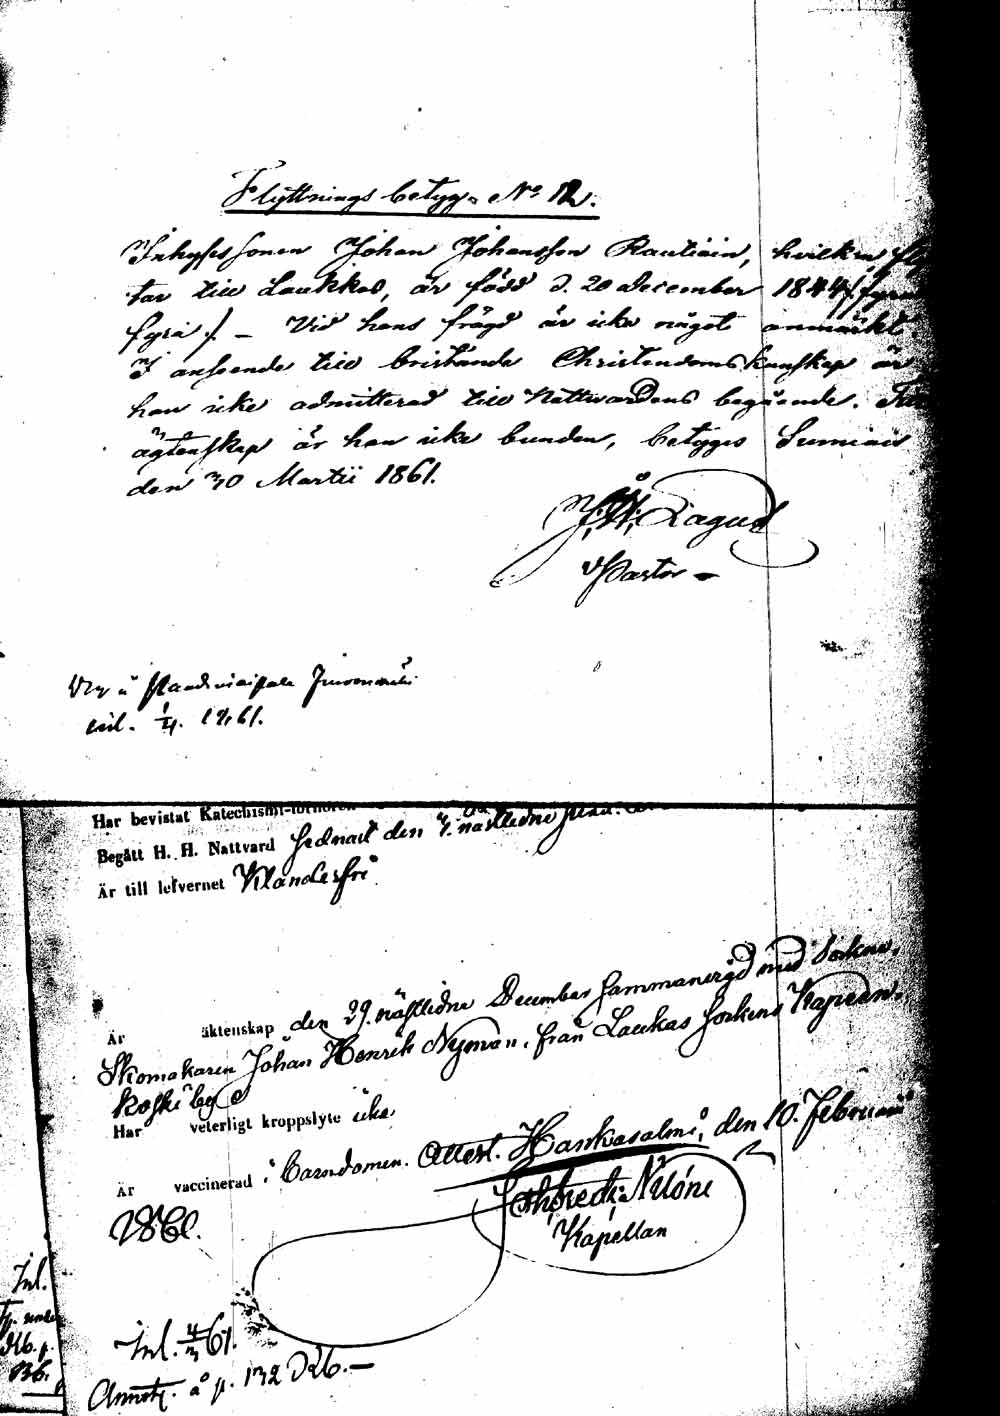 Flyttnings betyg. No 12.
Inhyses sonen Johan Johansson Rautiain, hvilken fly
tar till Laukkas, är född d. 20 december 1844 (fyra
fyra). – Vid hans frägd är icke något anmärkt.
I anseende till bristande Christendomskunskap är
han icke admitterad till Nattvardens begående. Från
ägtenskap är han icke bunden, betygas Sumiais
den 30 Martii 1861.
Lagus
v Pastor –
inl. 1/4. 1861.
Har bevistat Katechismi-förhören
Begått H. H. Nattvard sednast den 7. nästledne
Är till lefvernet Klanderfri
Är äktenskap den 29. nästledne December sammanvigd med Sockne-
Skomakaren Johan Henrik Nyman, från Laukas Sockens Kapeen-
koski by
Har veterligt kroppslyte icke
Är vaccinerad i Barndomen. Attest. Hankasalmi, den 10. Februarii
1861.
Kapellan
Inl. 4/3 61.
Annot. å p. 132 Kb. –
Inl.
Kb. p.